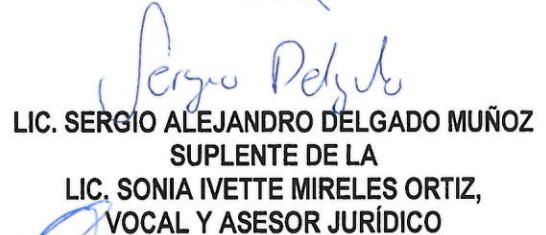 Sergio Delgado
LIC. SERGIO ALEJANDRO DELGADO MUÑOZ
SUPLENTE DE LA
LIC. SONIA IVETTE MIRELES ORTIZ,
VOCAL Y ASESOR JURÍDICO